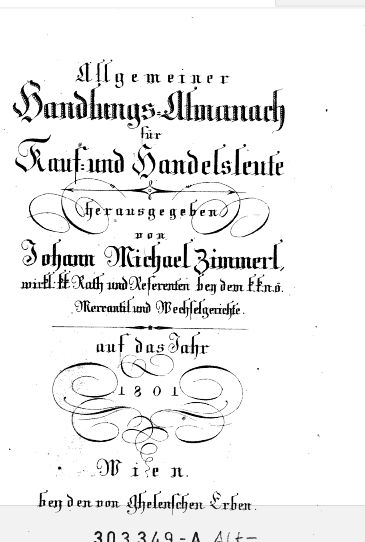 Allgemeiner
Handlungs-Almanach
für
Kauf- und Handelsleute
herausgegeben
von
Johann Michael Zimmerl,
wirkl. kk. Rath und Referenten bey dem k.k.n.ö.
Mercantil und Wechselgerichte.
auf das Jahr
1801
Wien.
bey den von Ghelenschen Erben.
303.349-A Alt-